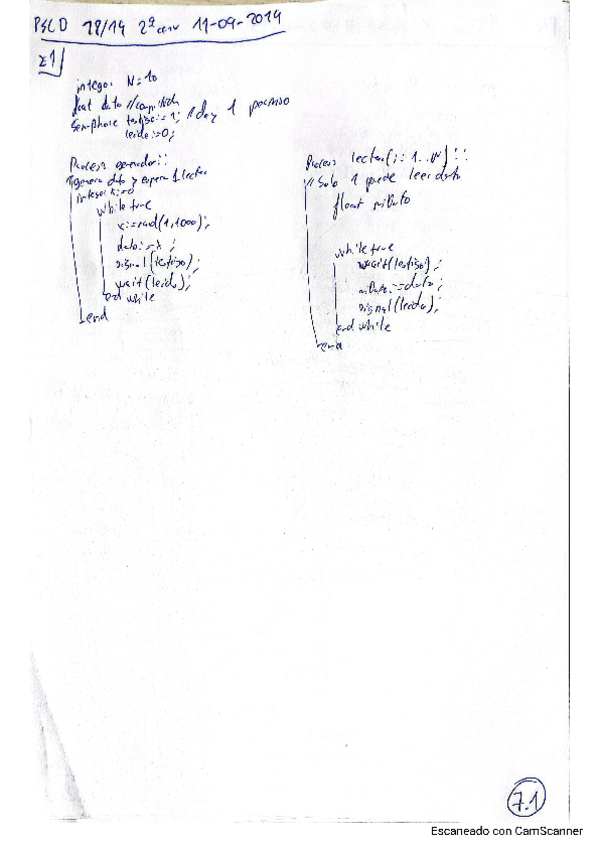 PSCD 18/19 2ª conv 11-09-2019
E1
integer N=10
float dato //compartida
Semaphore testigo:=1; //doy 1 permiso
leido:=0;
Process generador::
//genera dato y espera 1 lector
integer x:=0
while true
x:=rad(1,1000);
dato:=x;
signal(testigo);
wait(leido);
end while
end
Process lector(i: 1..N)::
//Solo 1 puede leer dato
float midato
while true
wait(testigo);
midato:=dato;
signal(leido);
end while
end
7.1
Escaneado con CamScanner